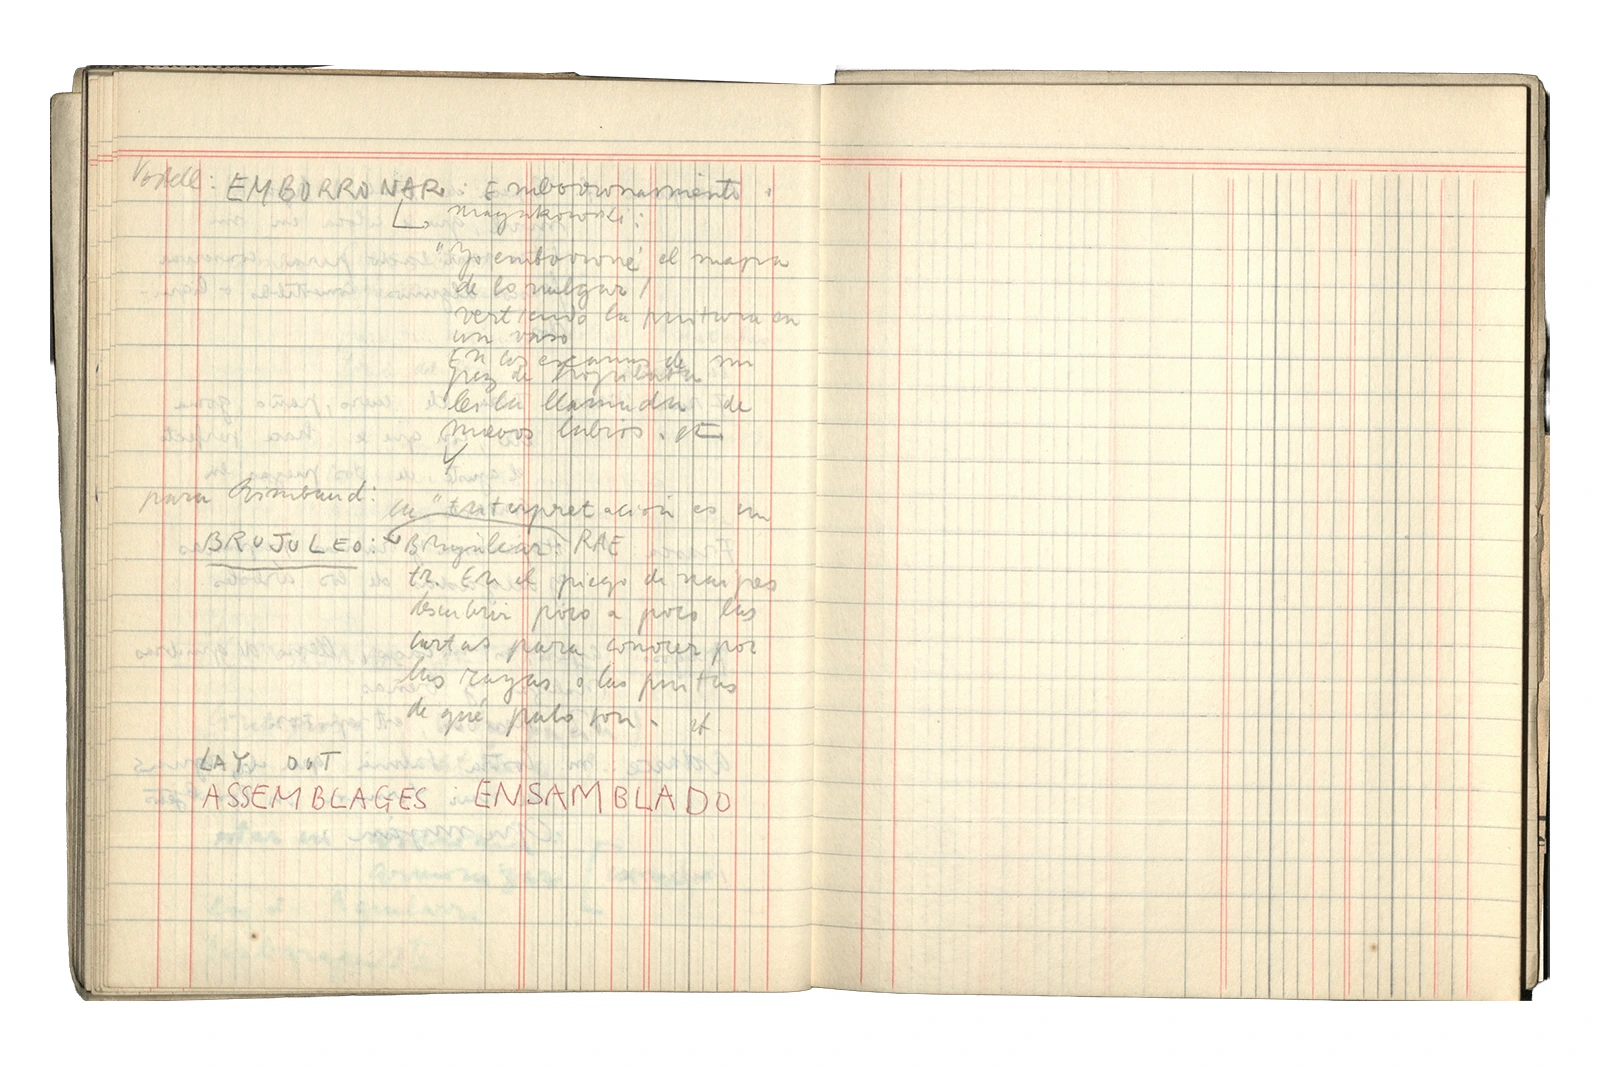 Vostell: EMBORRONAR : Emborronamiento.
mayakowski:
"Yo emborroné el mapa
de lo vulgar /
vertiendo la pintura en
un vaso
En las escamas de un
pez de
leí la llamada de
nuevos labios. etc
y
para Rimbaud:
la "interpretación es un
BRUJULEO: Brujulear: RAE
tr. En el juego de naipes
descubrir poco a poco las
cartas para conocer por
las rayas o las pintas
de qué palo son. etc.
LAY OUT
ASSEMBLAGES : ENSAMBLADO